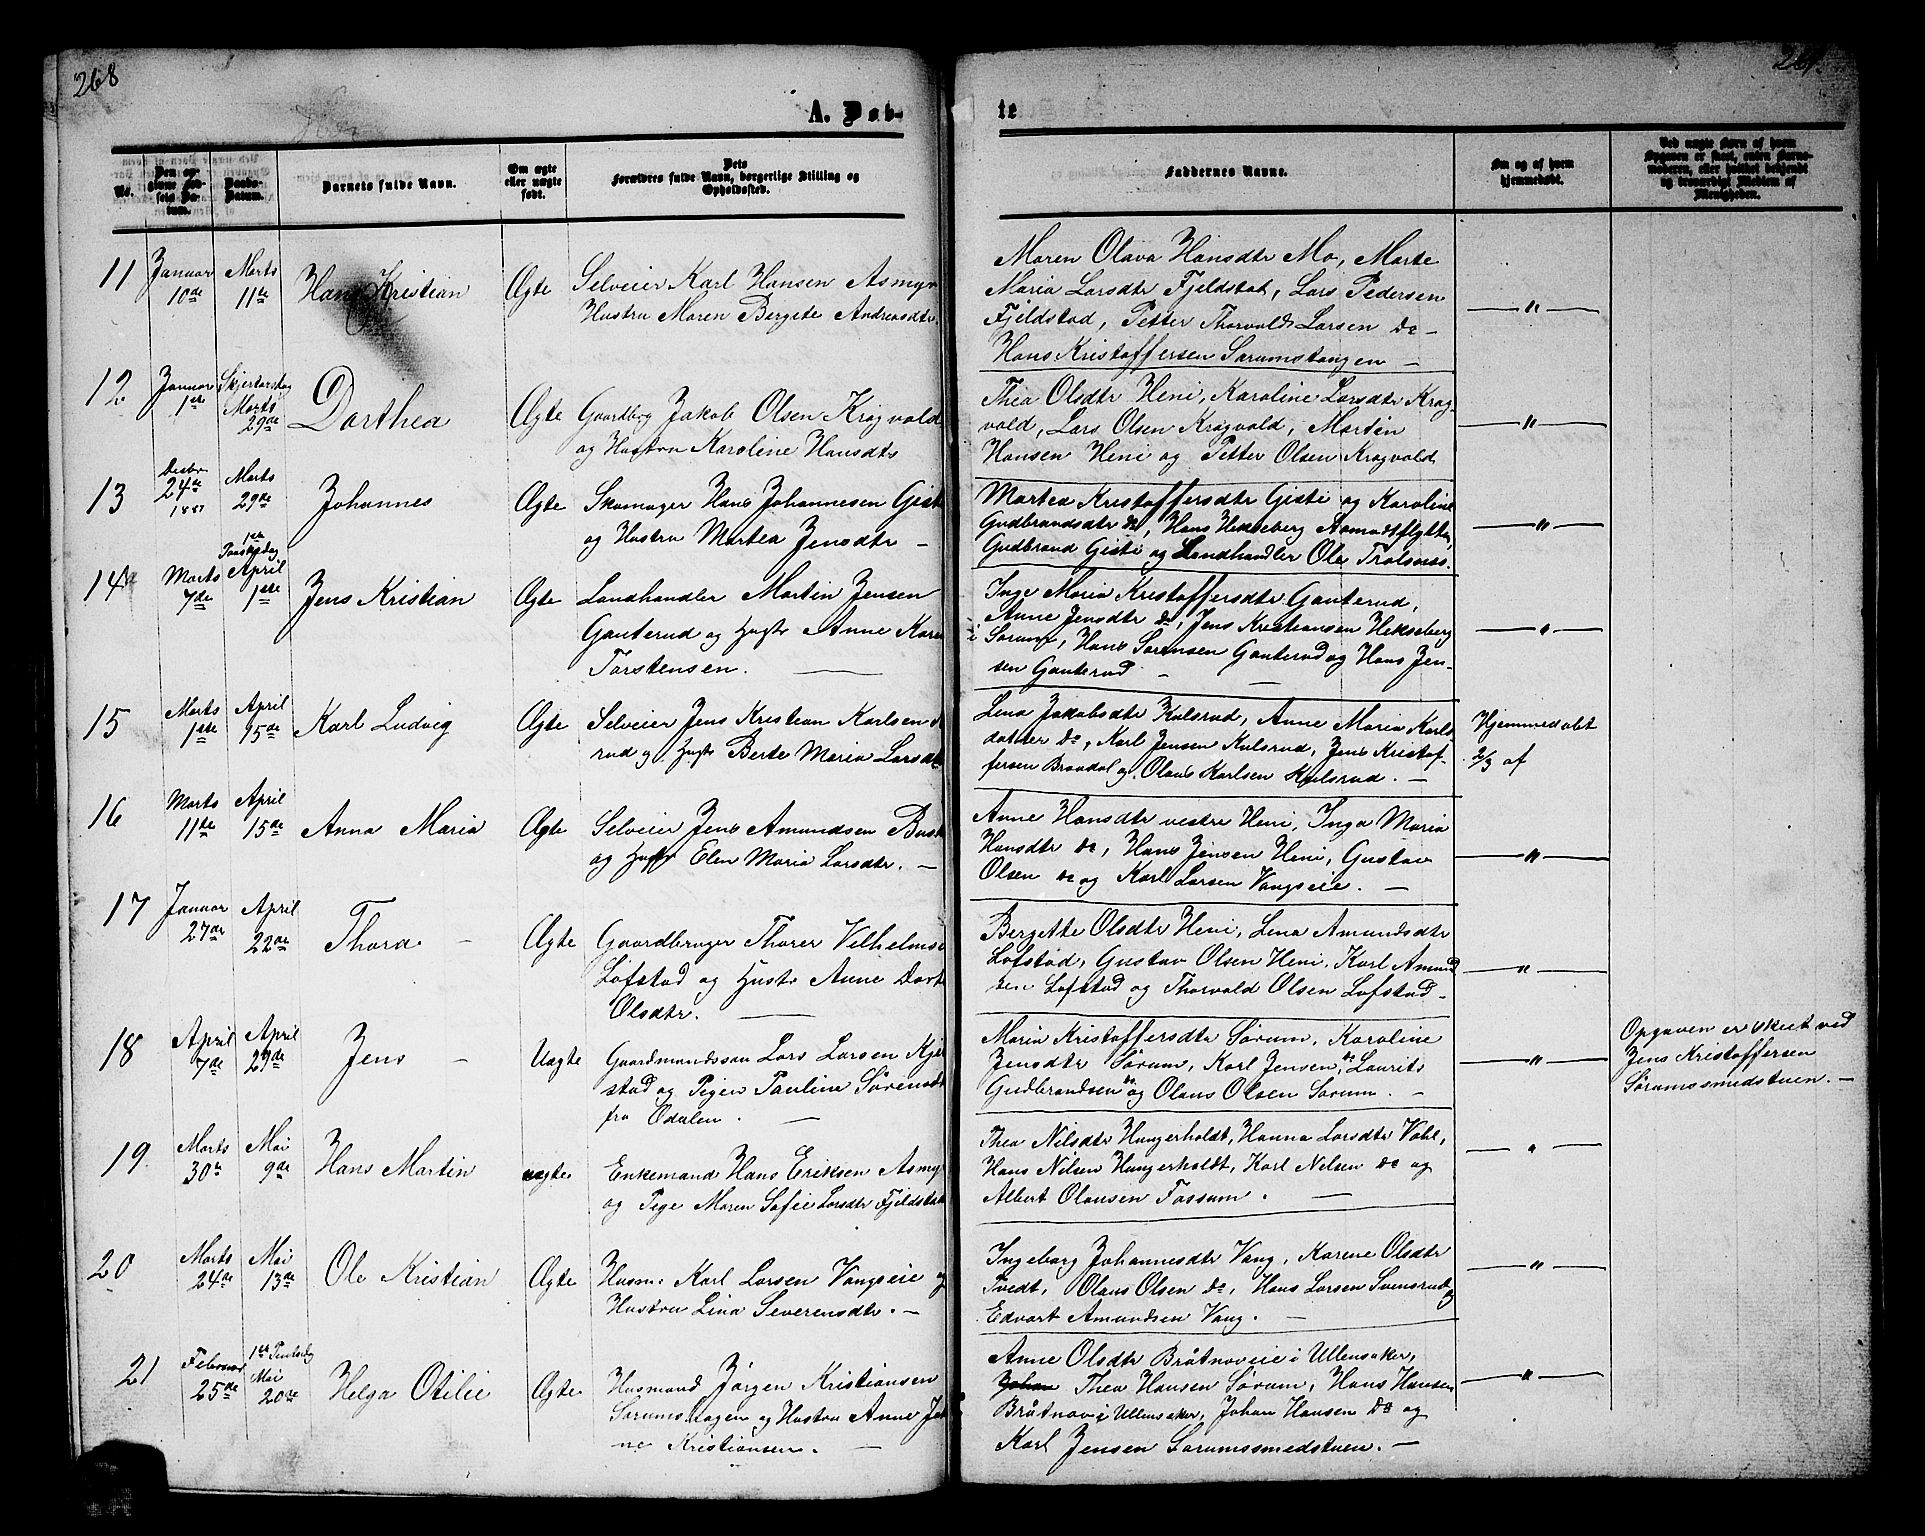 268
A. Døb-
No.
Den op-
givne Fød-
sels Da-
tum.
Daabs-
Datum.
Barnets fulde Navn.
Om ægte
eller uægte
født.
Dets
Forældres fulde Navn, borgerlige Stilling og
Opholdssted.
11
Januar
10de
Marts
11te
Hans Kristian
Ægte
Selveier Karl Hansen Asmyr
Hustru Maren Bergete Andreasdtr.
12
Januar
1ste
Skjertorsdag
Marts
29de
Dorthea
Ægte
Gaardbrg Jakob Olsen Kragvold
og Hustru Karoline Hansdtr
13
Decbr
24de
1887
Marts
29de
Johannes
Ægte
Skomager Hans Johannesen Giste
og Hustru Martea Jensdtr —
14
Marts
7de
1ste
Paaskedag
April
1ste
Jens Kristian
Ægte
Landhandler Martin Jensen
Gauterud og Hustr Anne Kare
Torstensen. —
15
Marts
1ste
April
15de
Karl Ludvig
Ægte
Selveier Jens Kristian Karlsen
rud og Hustr Berte Maria Larsdtr
16
Marts
11te
April
15de
Anna Maria
Ægte
Selveier Jens Amundsen
og Hustr Elen Maria Larsdtr. —
17
Januar
27de
April
22de
Thora —
Ægte
Gaardbruger Thorer Vilhelmse
Løfstad og Hustr Anne Dort
Olsdtr. —
18
April
7de
April
29de
Jens —
Uægte
Gaardmandssøn Lars Larsen Kjel
stad og Pigen Pauline Sørensdt
fra Odalen. —
19.
Marts
30te
Mai
9de
Hans Martin
uægte
Enkemand Hans Eriksen Asmyr
og Pige Maren Sofie Larsdtr Fjeldstad
20
Marts
24de
Mai
13de
Ole Kristian
Ægte
Husm. Karl Larsen Vangseie og
Hustru Lina Severensdtr. —
21
Februar
25de
1ste Pintsedag
Mai
20de
Helga Otilie
Ægte
Husmand Jørgen Kristiansen
Sørumshagen og Hustru Anne Jo
ne Kristiansen. —
te
Faddernes Navne.
Om og af hvem
hjemmedøbt.
Ved uægte Børn af hvem
Opgaven er skeet, naar Barne-
moderen, eller hvilket betyende
og troværdigt Medlem af
Menigheden.
Maren Olava Hansdtr Mo, Marte
Maria Larsdtr Fjeldstad, Lars Pedersen
Fjeldstad, Petter Thorvald Larsen do —
Hans Kristoffersen Sørumstangen —
— " —
Thea Olsdtr Heni, Karoline Larsdtr Krag-
vold, Lars Olsen Kragvold, Martin
Hansen Heni og Petter Olsen Kragvold
— " —
Martea Kristoffersdtr Giste og Karoline
Gudbrandsdtr do, Hans Hekseberg Asmudtflytten,
Gudbrand Giste og Landhandler Ole Trolsnes.
— " —
Inge Maria Kristoffersdtr Gauterud,
Anne Jensdtr do, Jens Kristiansen Hekseberg
i Sørum, Hans Sørensen Gauterud og Hans Jen-
sen Gauterud — —
— " —
Lena Jakobsdtr Kulsrud, Anne Maria Karls-
datter do, Karl Jensen Kulsrud, Jens Kristof-
fersen Braadal og Olaus Karlsen Kulsrud. —
Hjemmedøbt
2/3 af
Anne Hansdtr vestre Heni, Inga Maria
Hansdtr do, Hans Jensen Heni, Gustav
Olsen do og Karl Larsen Vangseie. —
— " —
Bergette Olsdtr Heni, Lena Amundsdtr
Løfstad, Gustav Olsen Heni, Karl Amund
sen Løfstad og Thorvald Olsen Løfstad —
— " —
Maria Kristoffersdtr Sørum, Karoline
Jensdtr Sørum, Karl Jensen do, Laurits
Gudbrandsen do og Olaus Olsen Sørum. —
— " —
Opgaven er skeet ved
Jens Kristoffersen
Sørumssmedstuen. —
Thea Nilsdtr Hungerholdt, Hanna Larsdtr Vahl,
Hans Nilsen Hungerholdt, Karl Nelsen do og
Albert Olausen Fossum. —
"
Ingeborg Johannesdtr Vang, Karene Olsdtr
Tvedt, Olaus Olsen do, Hans Larsen Svensrud og
Edvart Amundsen Vang. —
— " —
Anne Olsdtr Bråtnoveie i Ullensaker,
Johan Thea Hansen Sørum, Hans Hansen
Bråtnov i Ullensaker, Johan Hansen do og
Karl Jensen Sørumssmedstuen. —
— " —